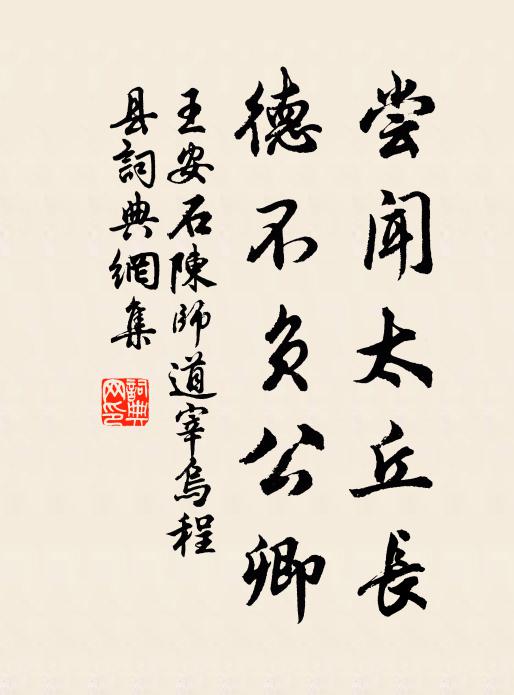 尝闻太丘长
德不负公卿
王安石陳師道宰烏程
县詞典網集
詞典网印